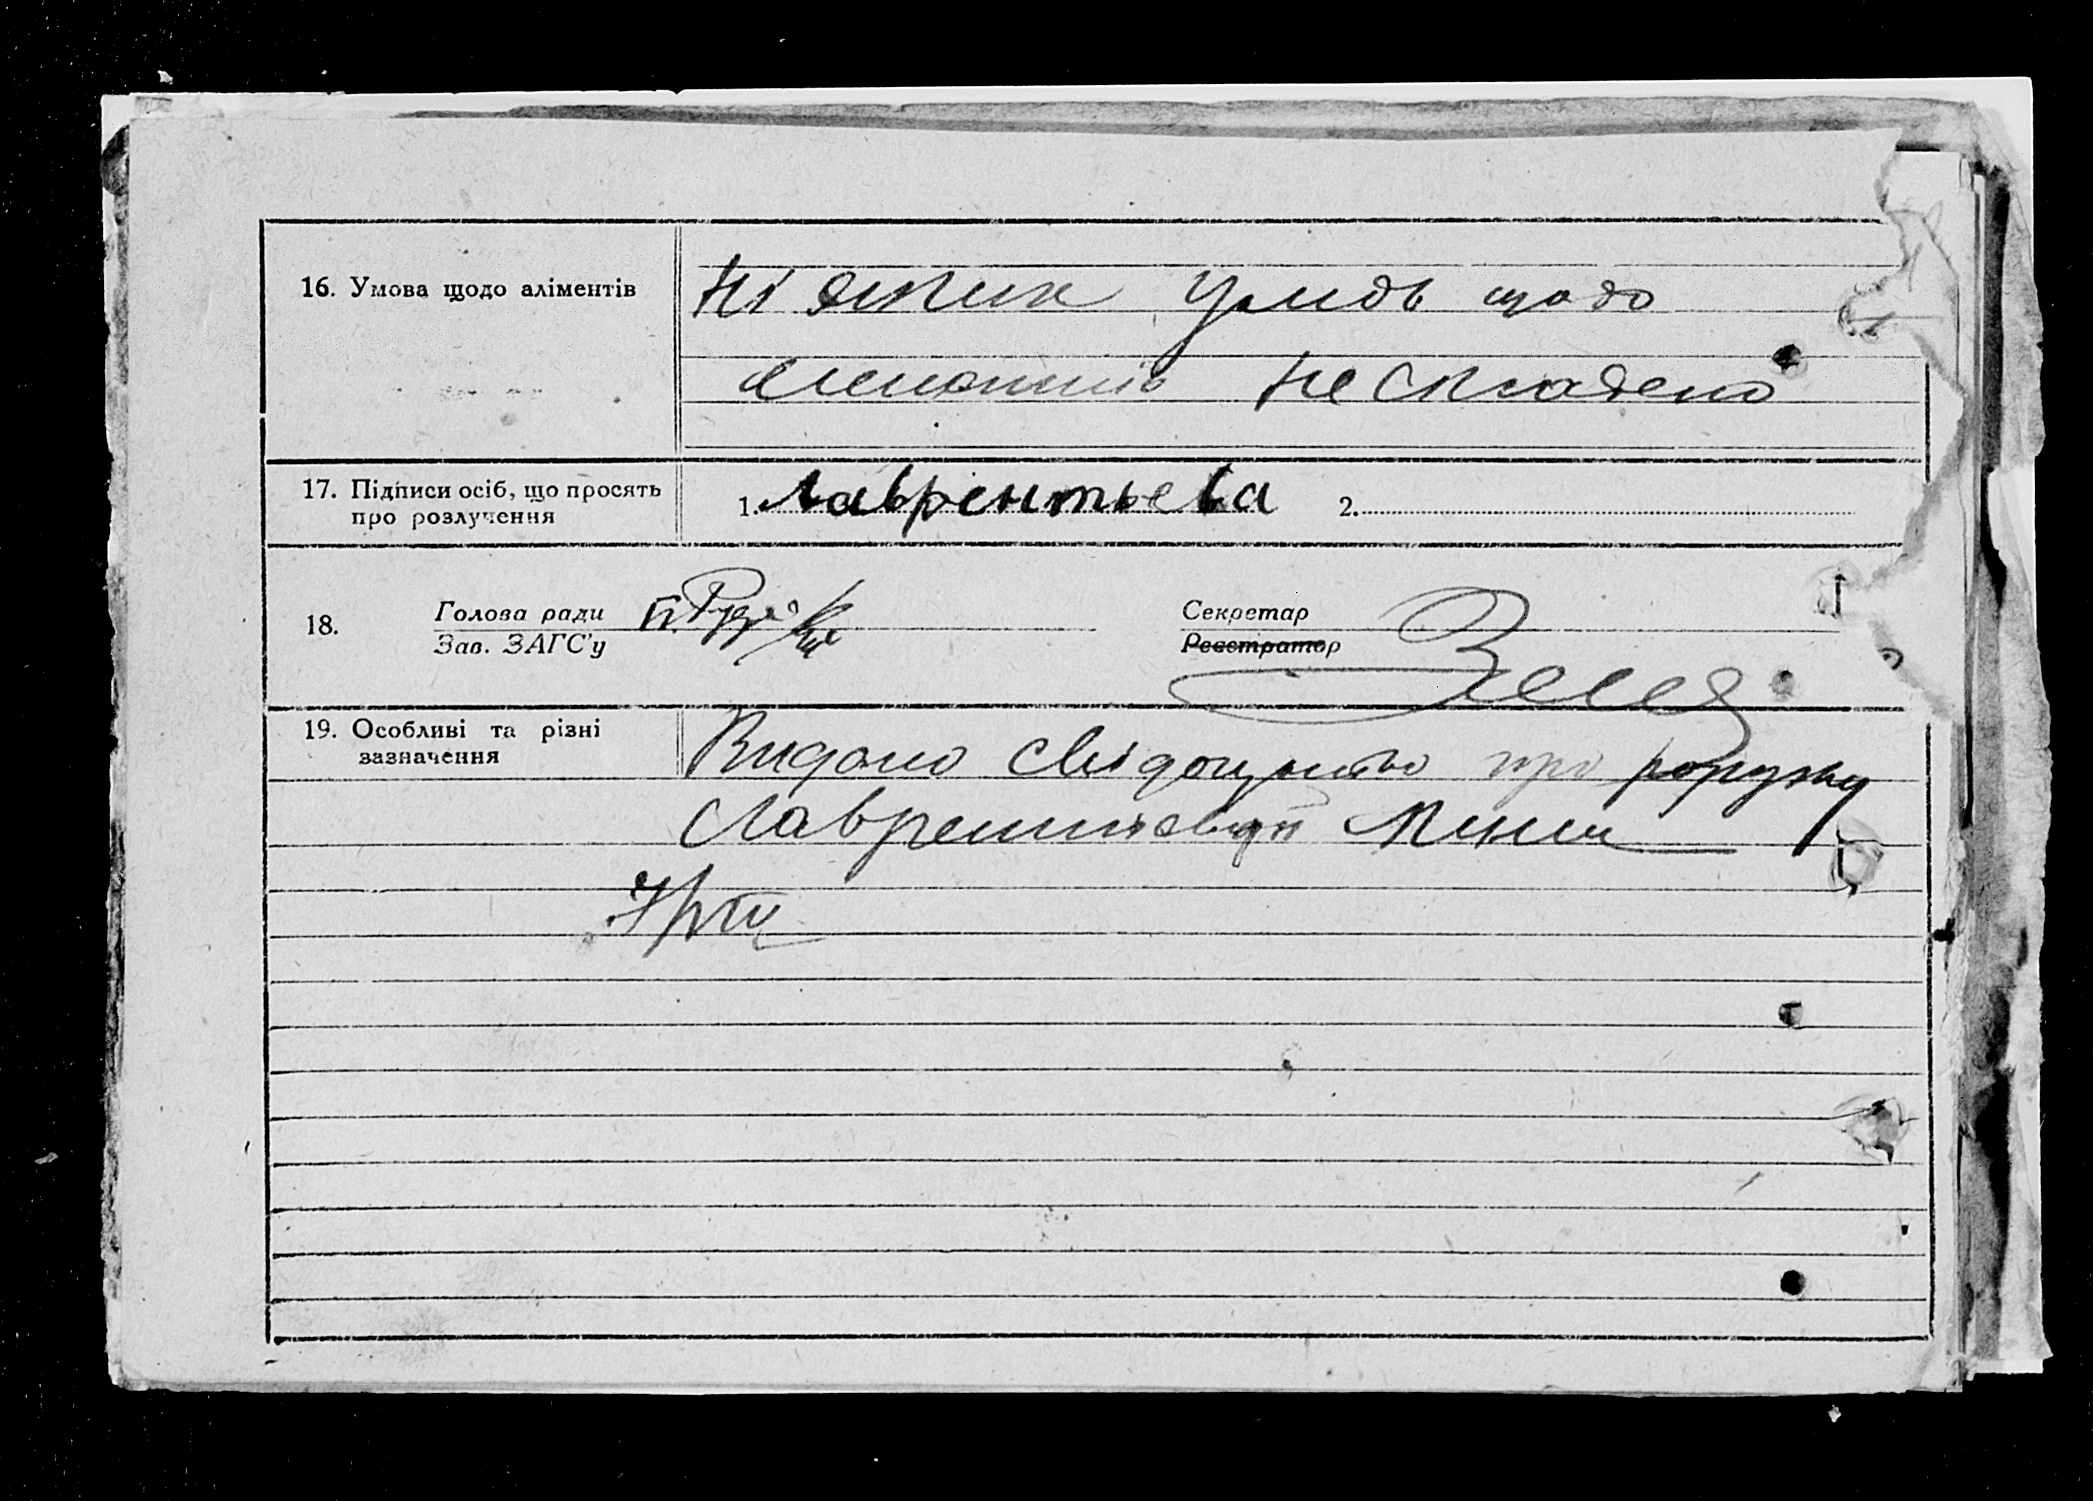 16. Умова щодо аліментів
Ніяких умов щодо
аліментів не складено
17. Підписи осіб, що просять
про розлучення
1. Лаврентьева 2.
18. Голова ради
Зав. ЗАГС'у
Секретар
Реєстратор
19. Особливі та різні
зазначення
Видано свідоцтво про
Лаврентьевій